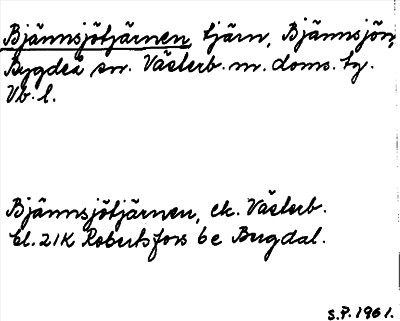 Bjännsjötjärnen, tjärn, Bjännsjön,
Bygdeå sn. Västerb. m. doms. tg.
Vb. l.
Bjännsjötjärnen, ek. Västerb.
bl. 21K Robertsfors 6e Bygdal.
S.P. 1961.